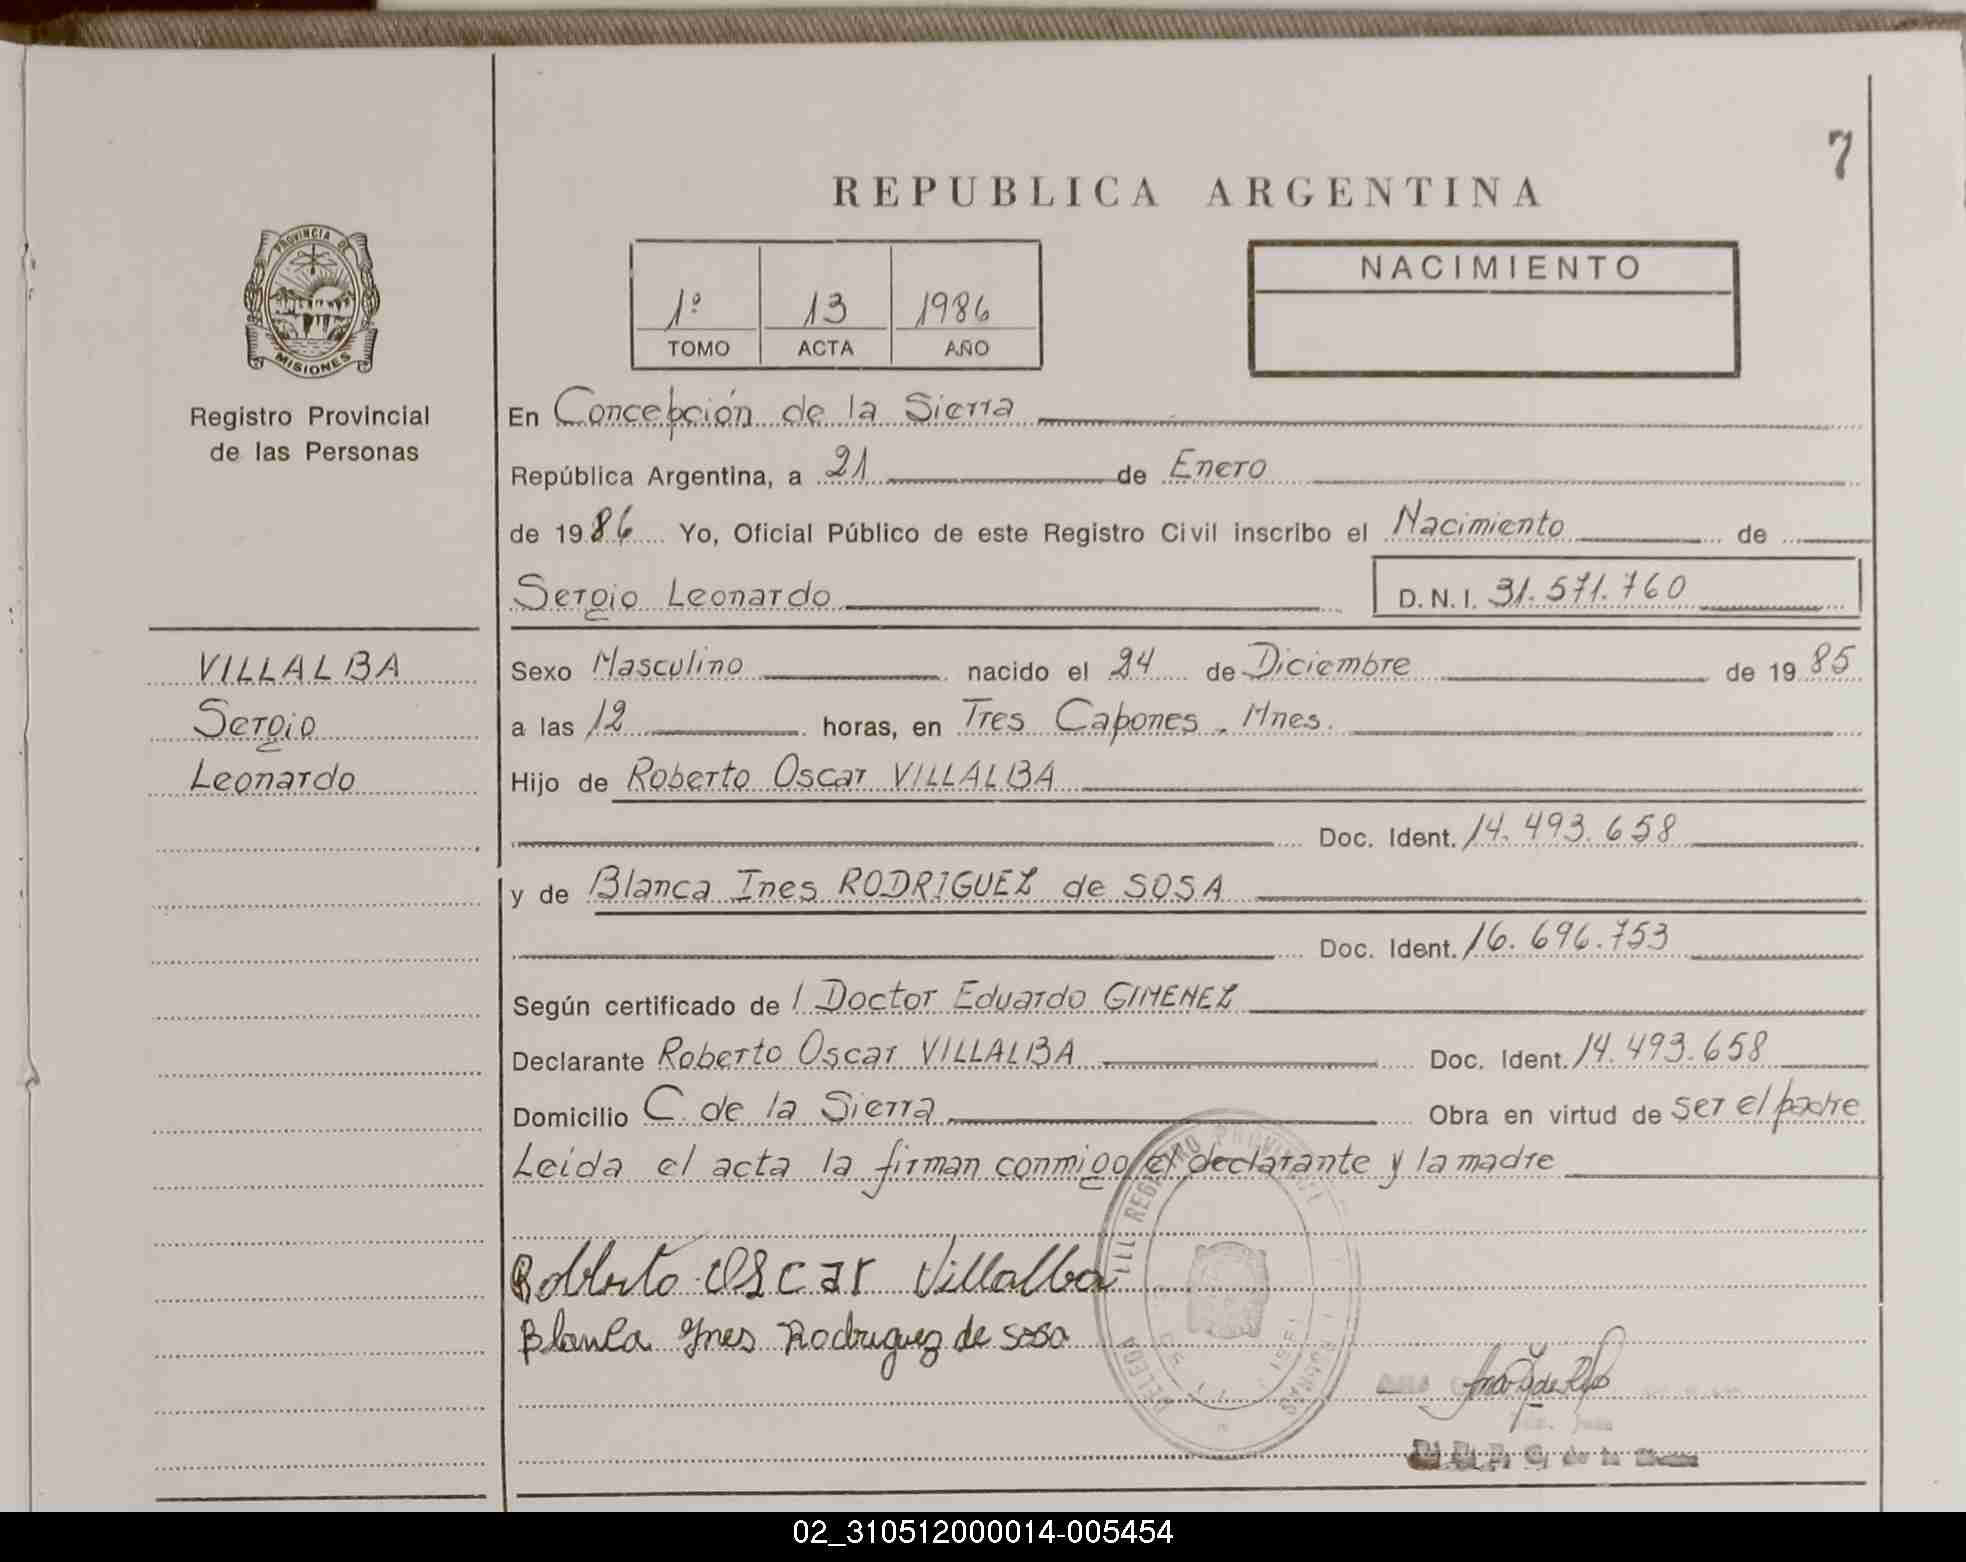 7
REPUBLICA ARGENTINA
PROVINCIA DE
MISIONES
Registro Provincial
de las Personas
1º 13 1986
TOMO ACTA AÑO
NACIMIENTO
En Concepción de la Sierra
República Argentina, a 21 de Enero
de 1986 Yo, Oficial Público de este Registro Civil inscribo el Nacimiento de
Sergio Leonardo D.N.I. 31.571.760
VILLALBA
Sergio
Leonardo
Sexo Masculino nacido el 24 de Diciembre de 1985
a las 12 horas, en Tres Capones - Mnes.
Hijo de Roberto Oscar VILLALBA
Doc. Ident. 14.493.658
y de Blanca Ines RODRIGUEZ de SOSA
Doc. Ident. 16.696.753
Según certificado de l Doctor Eduardo GIMENEZ
Declarante Roberto Oscar VILLALBA Doc. Ident. 14.493.658
Domicilio C. de la Sierra Obra en virtud de ser el padre
Leida el acta la firman conmigo el declarante y la madre
Roberto Oscar Villalba
Blanca Ines Rodriguez de Sosa
REGISTRO PROVINCIAL
de la Sierra
02_310512000014-005454